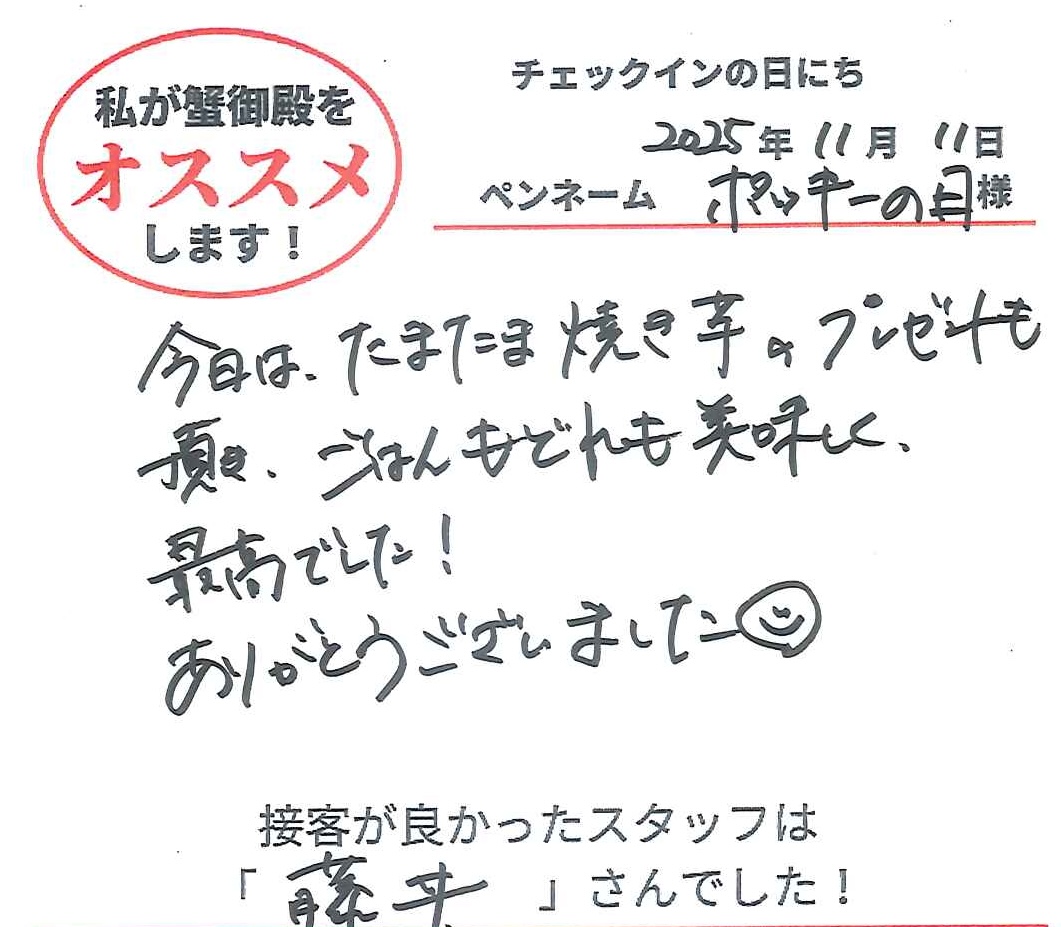 私が蟹御殿を
オススメ
します！
チェックインの日にち
2025年 11月 11日
ペンネーム ポッキーの日様
今日は、たまたま焼き芋のプレゼントも
頂き、ごはんもどれも美味しく、
最高でした！
ありがとうございました
接客が良かったスタッフは
「藤井」さんでした！